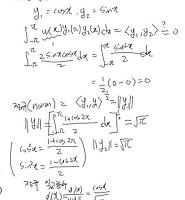 y₁ = cosx, y₂ = sinx
∫_{-π}^{π} w(x)y₁(x)y₂(x)dx = <y₁, y₂> ≟ 0
∫_{-π}^{π} 2sinxcosx/2 dx = ∫_{-π}^{π} sin2x/2 dx
= 1/2 (0-0) = 0
(norm) = <y, y>^{1/2} = ||y||
||y₁|| = [∫_{-π}^{π} 1+cos2x/2 dx]^{1/2} = √π
(cos²x = 1+cos2x/2 ||y₂|| = √π
sin²x = 1-cos2x/2)
y₁(x)/||y₁(x)|| = cosx/√π